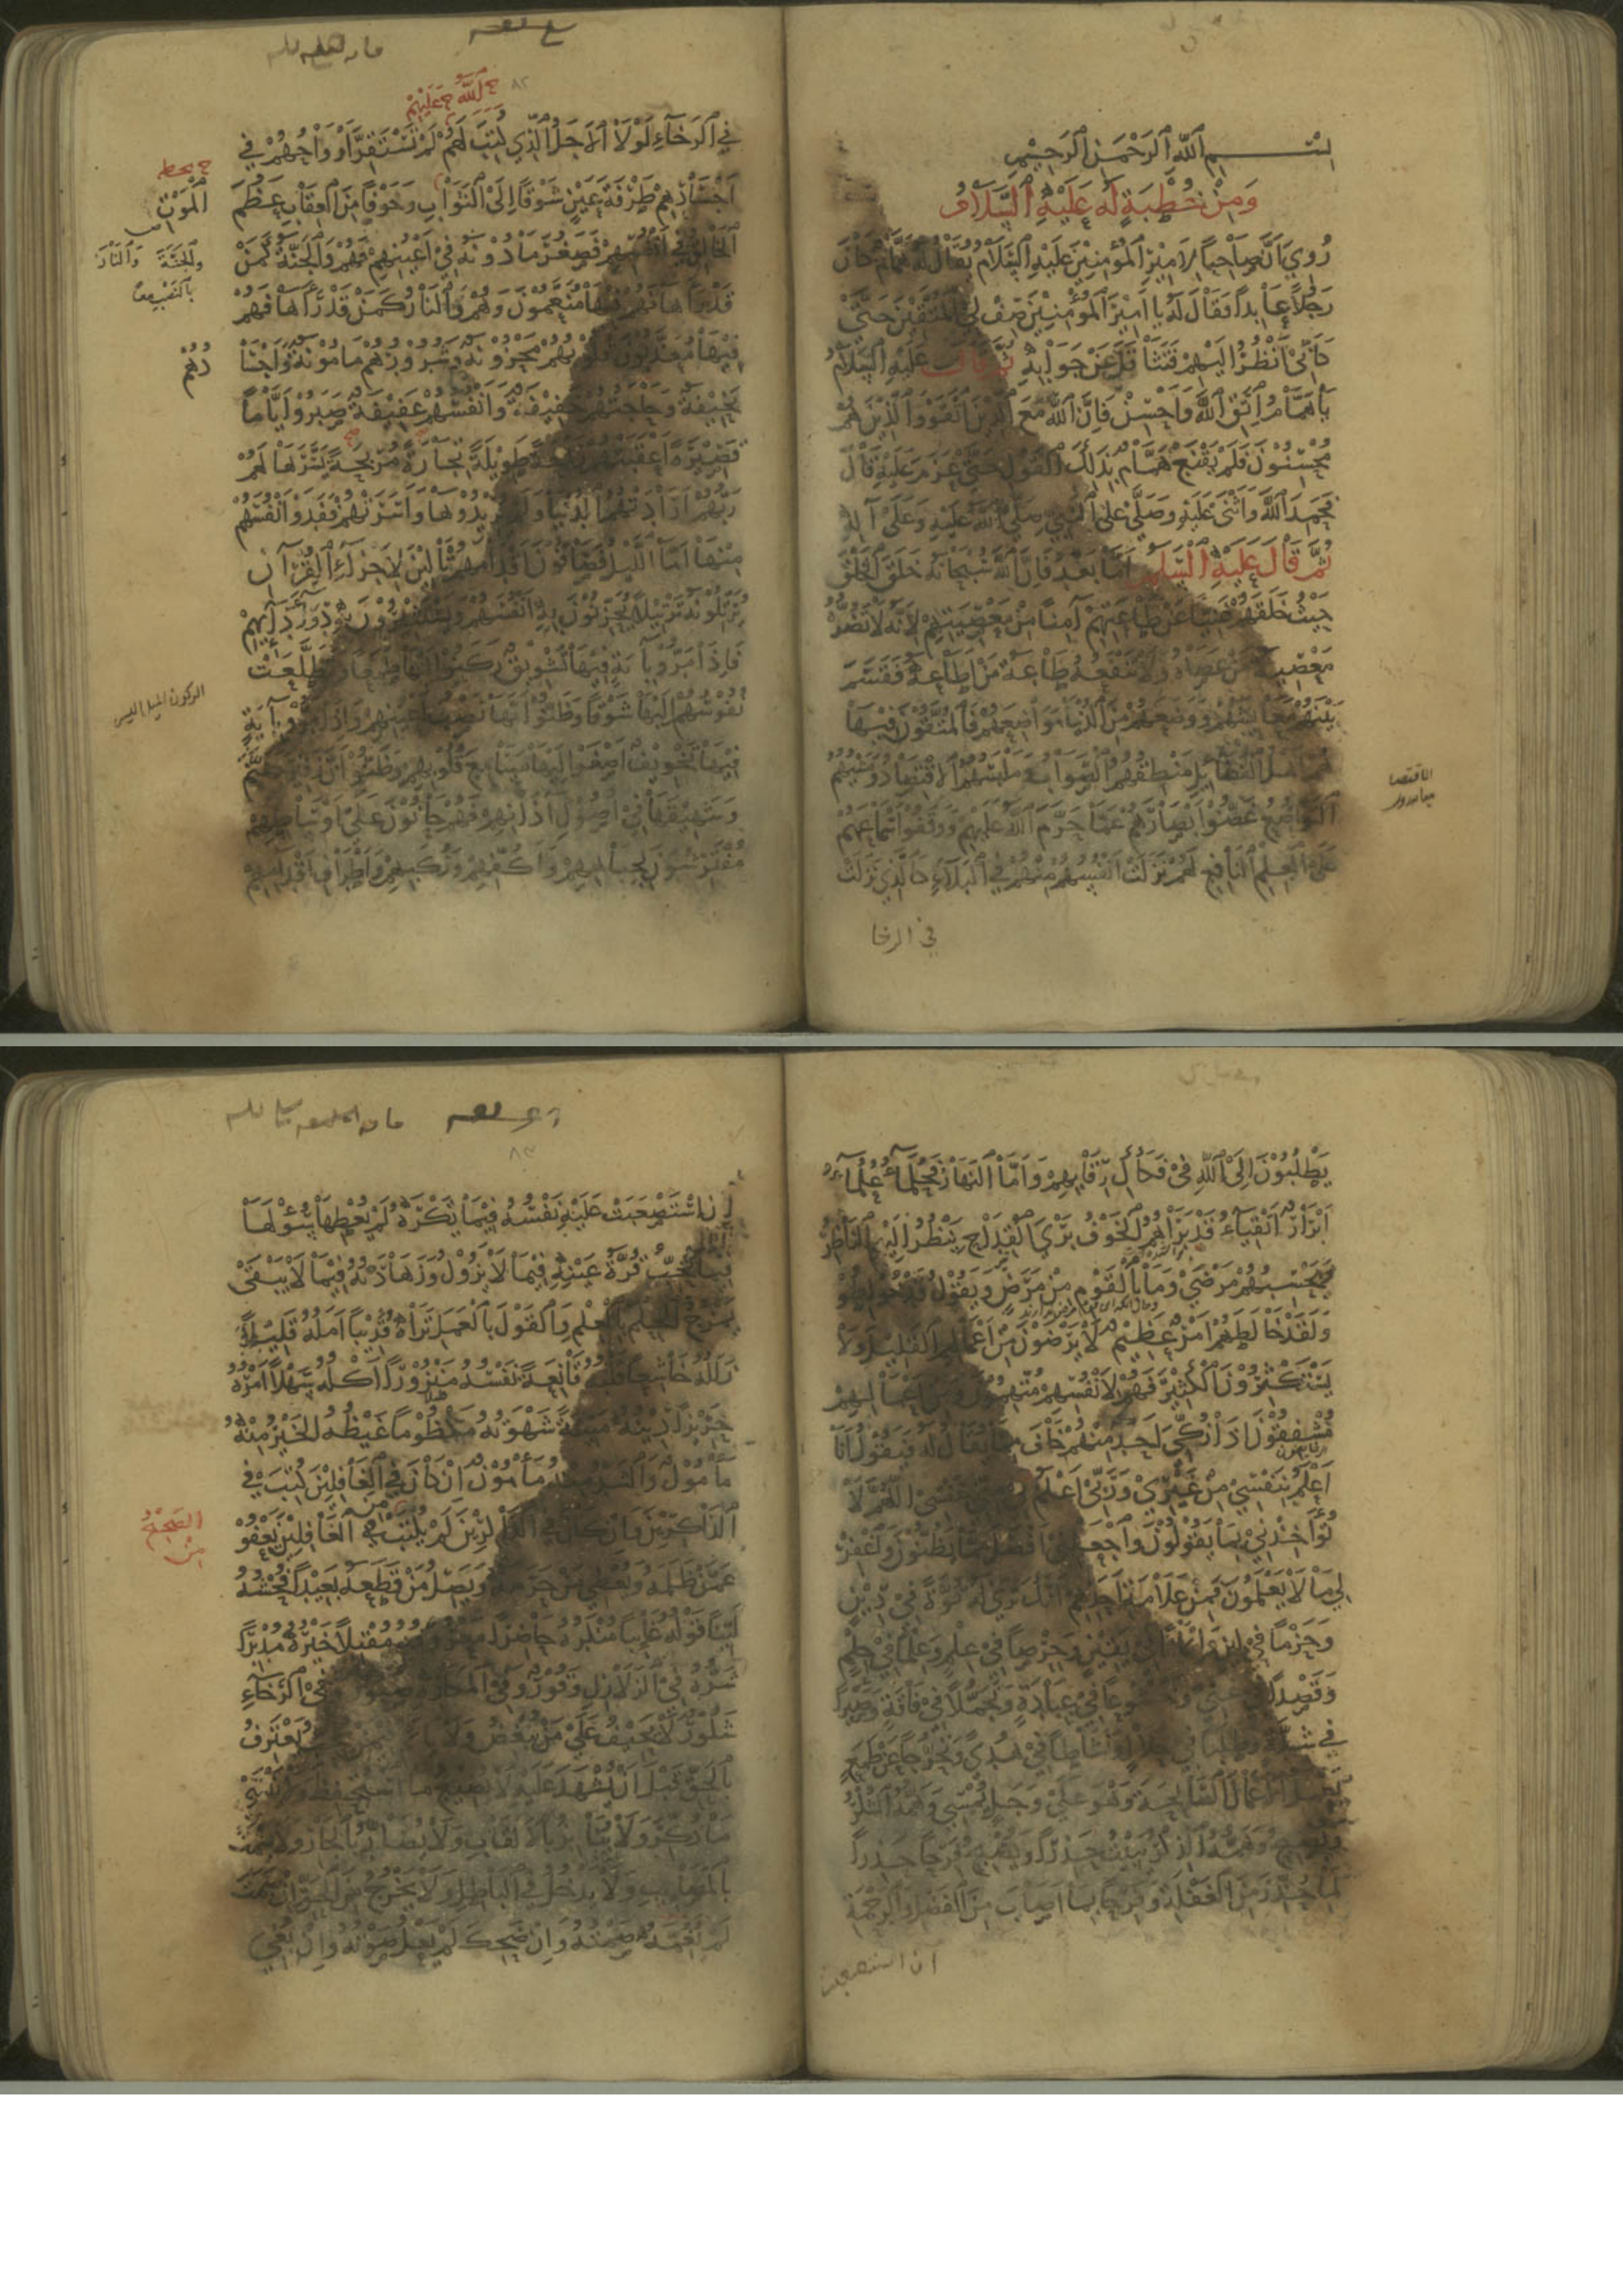 بسم الله الرحمن الرحيم
ومن خطبة له عليه السلام
روي ان صاحبا لامير المؤمنين عليه السلام يقال له همام كان
رجلا عابدا فقال له يا امير المؤمنين صف لي المتقين حتى
كاني انظر اليهم فتثاقل عن جوابه ثم قال عليه السلام
يا همام اتق الله واحسن فان الله مع الذين اتقوا والذين هم
محسنون فلم يقنع همام بذلك القول حتى عزم عليه قال
فحمد الله واثنى عليه وصلى على النبي صلى الله عليه وعلى آله
ثم قال عليه السلام اما بعد فان الله سبحانه خلق الخلق
حيث خلقهم غنيا عن طاعتهم آمنا من معصيتهم لانه لا تضره
معصية من عصاه ولا تنفعه طاعة من اطاعه فقسم
بينهم معايشهم ووضعهم من الدنيا مواضعهم فالمتقون فيها
هم اهل الفضائل منطقهم الصواب وملبسهم الاقتصاد ومشيهم
التواضع غضوا ابصارهم عما حرم الله عليهم ووقفوا اسماعهم
على العلم النافع لهم نزلت انفسهم منهم في البلاء كالذي نزلت
في الرخا
٨٢
الله عليهم
في الرخاء لولا الاجل الذي كتب لهم لم تستقر ارواحهم في
اجسادهم طرفة عين شوقا الى الثواب وخوفا من العقاب عظم
الخالق في انفسهم فصغر ما دونه في اعينهم فهم والجنة كمن
قد رآها فهم فيها منعمون وهم والنار كمن قد رآها فهم
فيها معذبون قلوبهم محزونة وشرورهم مامونة واجسا
دهم
نحيفة وحاجتهم خفيفة وانفسهم عفيفة صبروا اياما
قصيرة اعقبتهم راحة طويلة تجارة مربحة يسرها لهم
ربهم ارادتهم الدنيا ولم يريدوها واسرتهم ففدوا انفسهم
منها اما الليل فصافون اقدامهم تالين لاجزاء القرآن
يرتلونه ترتيلا يحزنون به انفسهم ويستثيرون به دواء دائهم
فاذا مروا بآية فيها تشويق ركنوا اليها طمعا وتطلعت
نفوسهم اليها شوقا وظنوا انها نصب اعينهم واذا مروا بآية
فيها تخويف اصغوا اليها مسامع قلوبهم وظنوا ان زفير جهنم
وشهيقها في اصول آذانهم فهم حانون على اوساطهم
مفترشون لجباههم واكفهم وركبهم واطراف اقدامهم
الموت
والجنة والنار
بالنصب
الركون الميل اليسير
يطلبون الى الله في فكاك رقابهم واما النهار فحلماء علماء
ابرار اتقياء قد براهم الخوف بري القداح ينظر اليهم الناظر
فيحسبهم مرضى وما بالقوم من مرض ويقول قد خولطوا
ولقد خالطهم امر عظيم لا يرضون من اعمالهم القليل ولا
يستكثرون الكثير فهم لانفسهم متهمون ومن اعمالهم
مشفقون اذا زكي احد منهم خاف مما يقال له فيقول انا
اعلم بنفسي من غيري وربي اعلم مني بنفسي اللهم لا
تؤاخذني بما يقولون واجعلني افضل مما يظنون واغفر
لي ما لا يعلمون فمن علامة احدهم انك ترى له قوة في دين
وحزما في لين وايمانا في يقين وحرصا في علم وعلما في حلم
وقصدا في غنى وخشوعا في عبادة وتجملا في فاقة وصبرا
في شدة وطلبا في حلال ونشاطا في هدى وتحرجا عن طمع
يعمل الاعمال الصالحة وهو على وجل يمسي وهمه الشكر
ويصبح وهمه الذكر يبيت حذرا ويصبح فرحا حذرا
لما حذر من الغفلة وفرحا بما اصاب من الفضل والرحمة
ان استصعبت
٨٣
ان استصعبت عليه نفسه فيما تكره لم يعطها سؤلها
فيما تحب قرة عينه فيما لا يزول وزهادته فيما لا يبقى
يمزج الحلم بالعلم والقول بالعمل تراه قريبا امله قليلا
زلله خاشعا قلبه قانعة نفسه منزورا اكله سهلا امره
حريزا دينه ميتة شهوته مكظوما غيظه الخير منه
مامول والشر منه مامون ان كان في الغافلين كتب في
الذاكرين وان كان في الذاكرين لم يكتب من الغافلين يعفو
عمن ظلمه ويعطي من حرمه ويصل من قطعه بعيدا فحشه
لينا قوله غايبا منكره حاضرا معروفه مقبلا خيره مدبرا
شره في الزلازل وقور وفي المكاره صبور وفي الرخاء
شكور لا يحيف على من يبغض ولا ياثم فيمن يحب يعترف
بالحق قبل ان يشهد عليه لا يضيع ما استحفظ ولا ينسى
ما ذكر ولا ينابز بالالقاب ولا يضار بالجار ولا يشمت
بالمصايب ولا يدخل في الباطل ولا يخرج من الحق ان صمت
لم يغمه صمته وان ضحك لم يعل صوته وان بغي